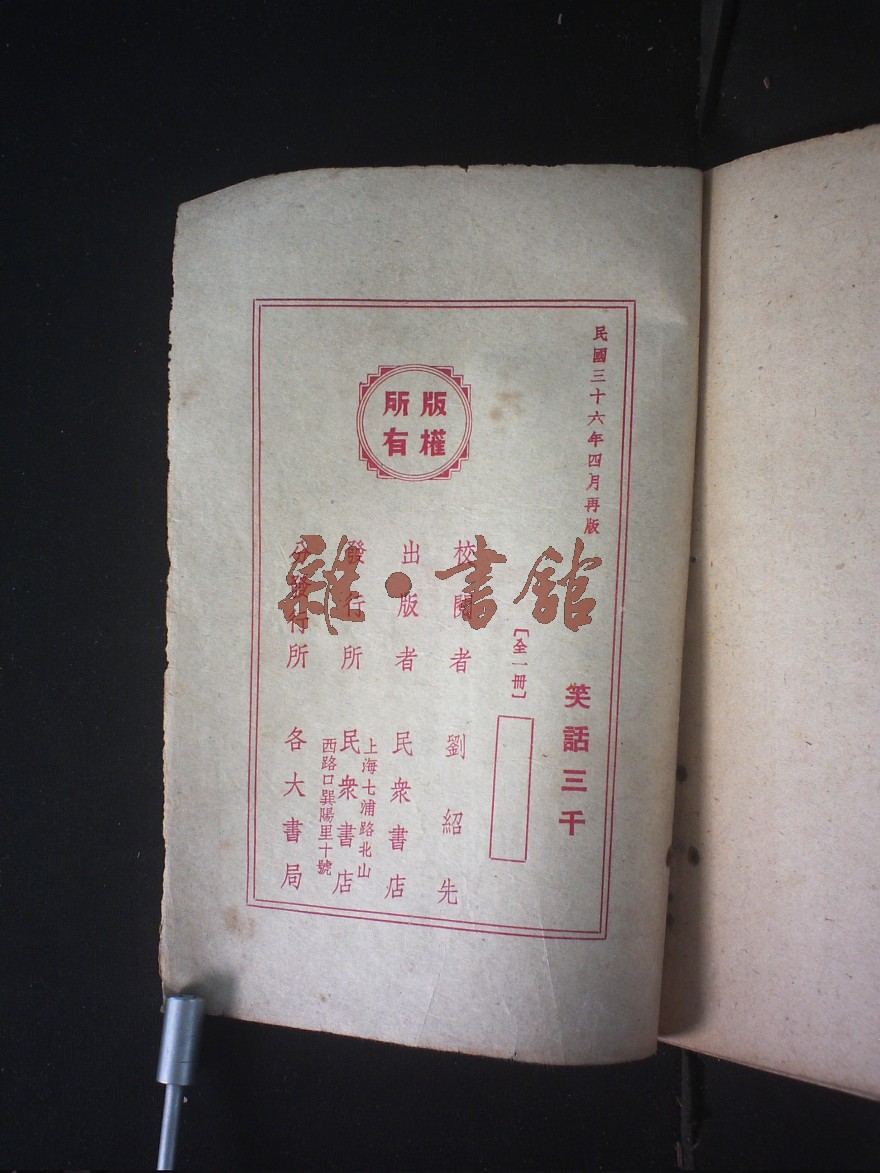 民國三十六年四月再版
笑話三千
［全一冊］
校閱者　劉紹先
出版者　民衆書店
發行所　民衆書店
上海七浦路北山
西路口巽陽里十號
分發行所　各大書局
版權
所有
雜·書館